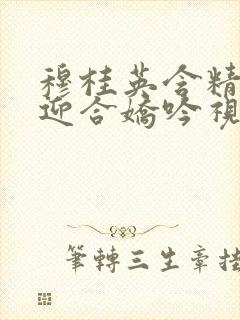 穆桂英含精
迎合嬌吟視
筆轉三生章掛